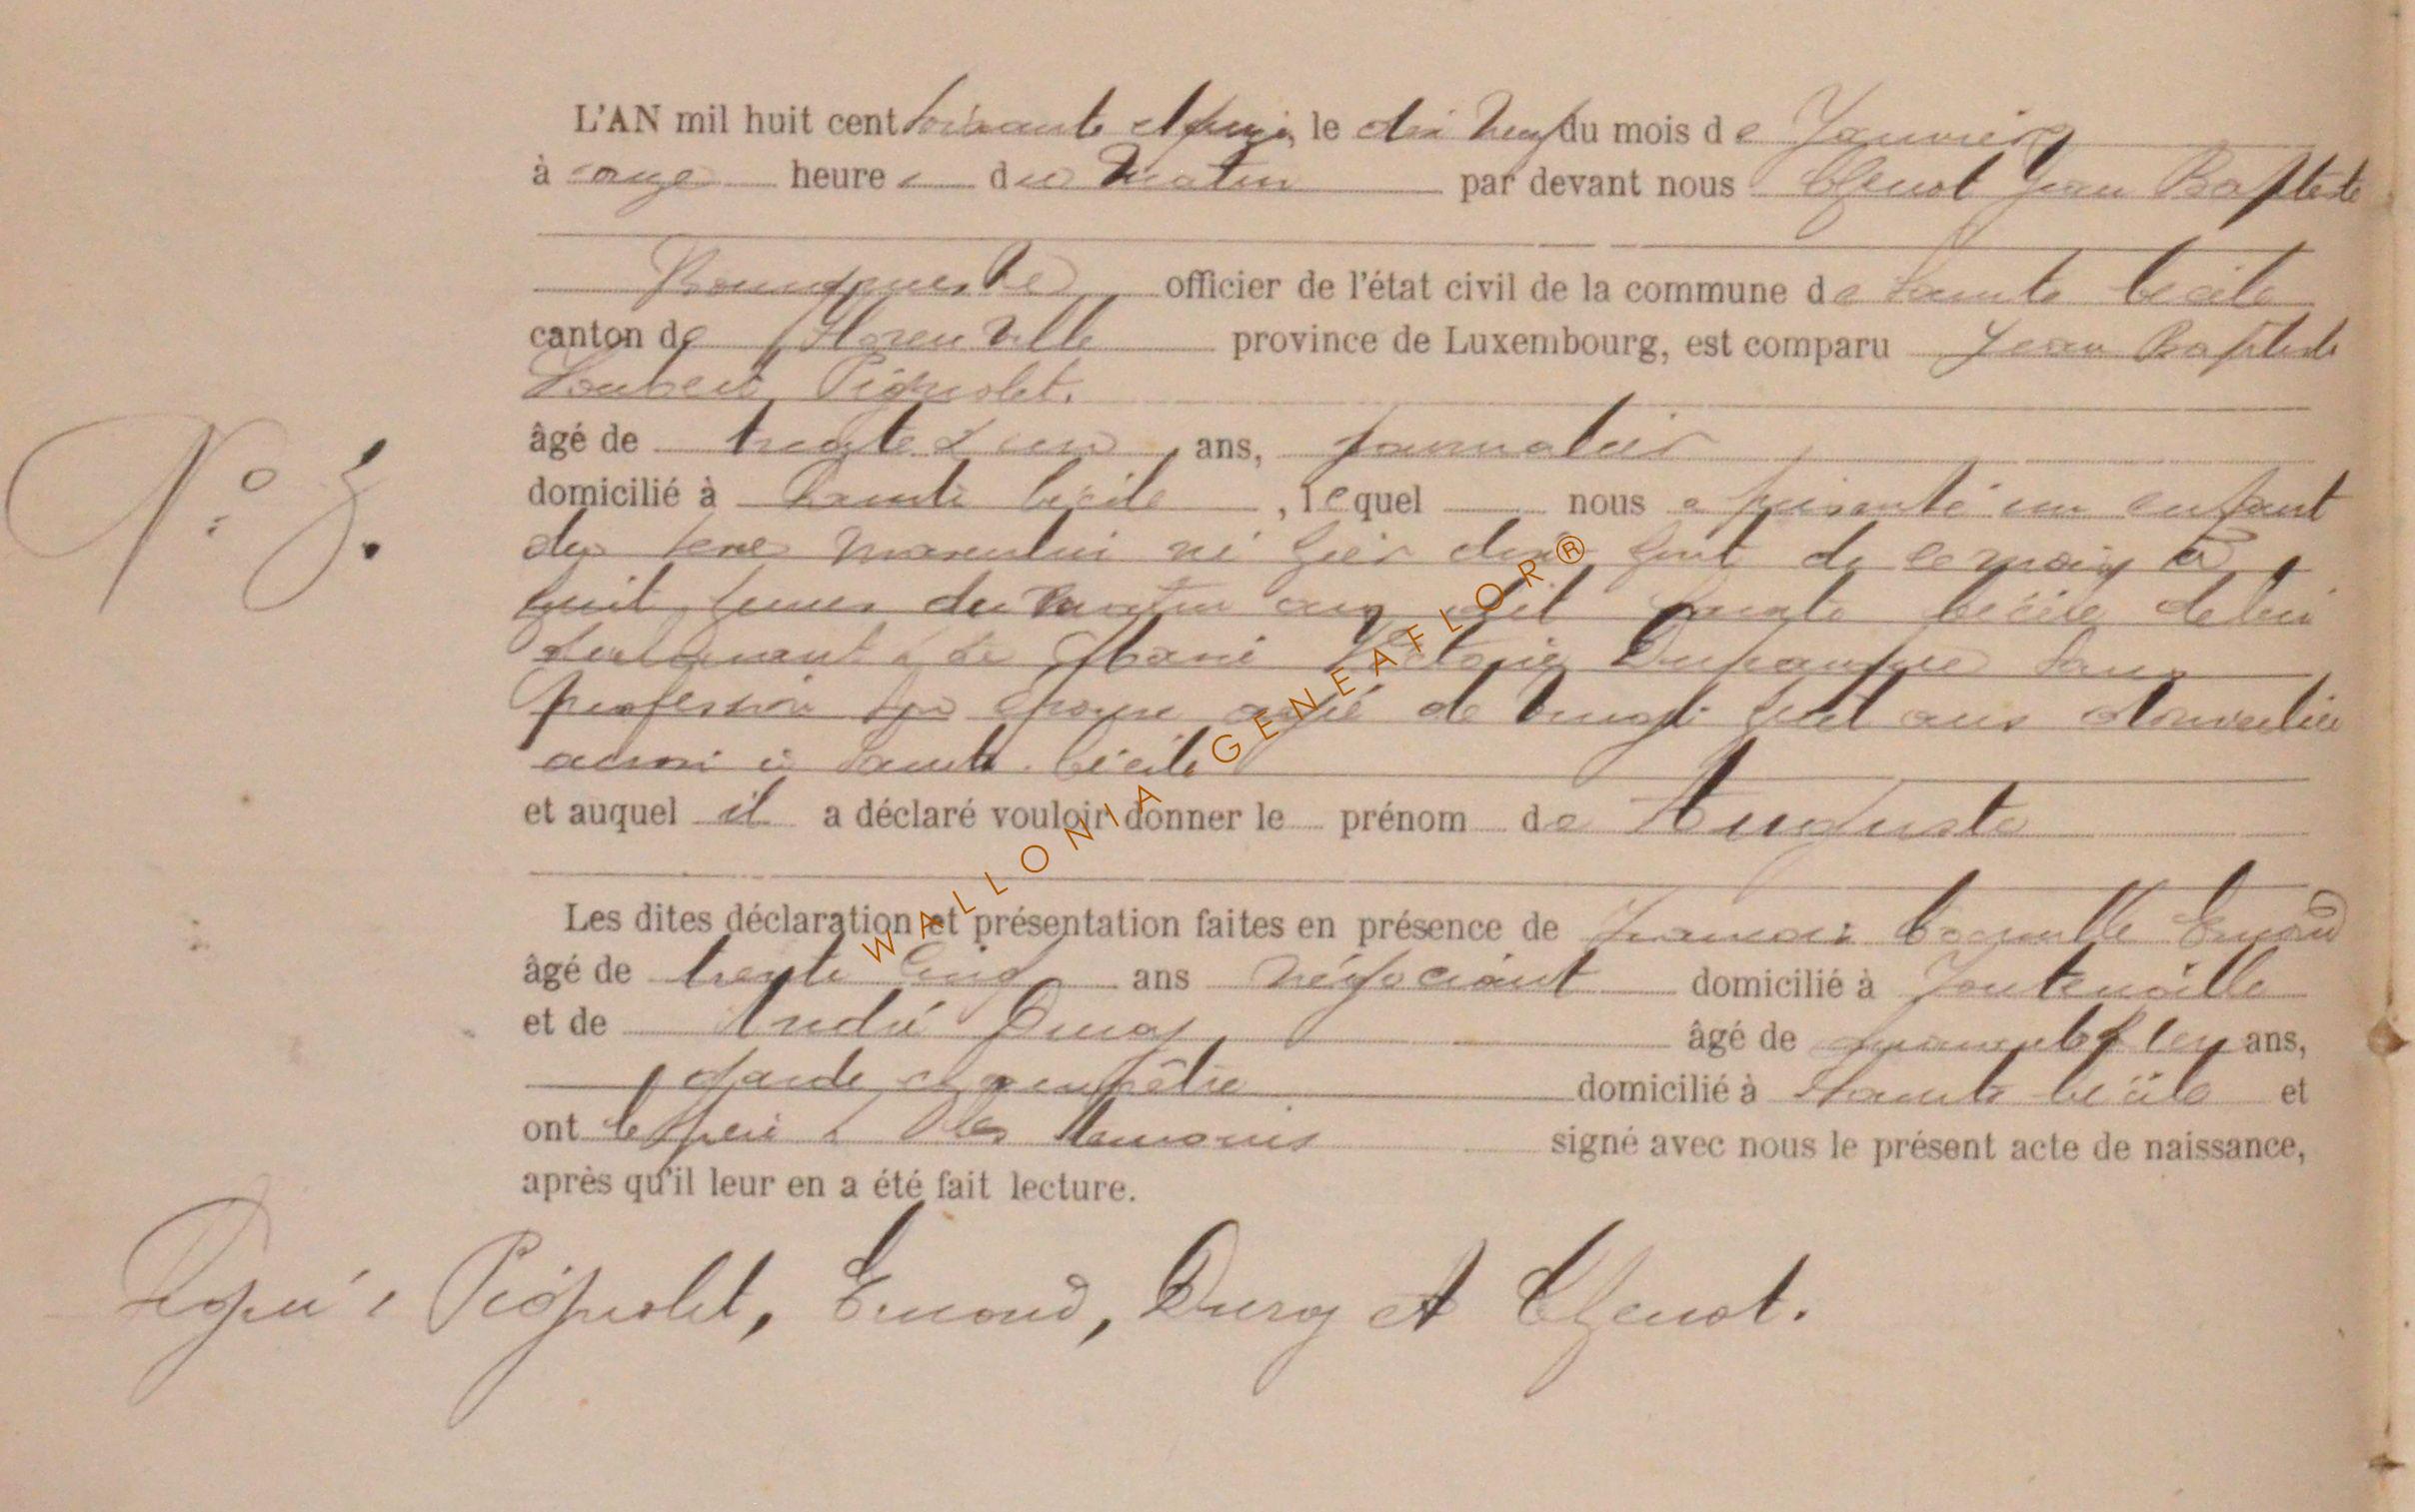 L'AN mil huit cent soixante et onze, le dix neuf du mois de Janvier
à onze heures du Matin par devant nous Chenot Jean Baptiste
Bourgmestre officier de l'état civil de la commune de Sainte Cecile
canton de Florenville province de Luxembourg, est comparu Jean Baptiste
Lambert Pignolet.
âgé de trente & un ans, journalier
domicilié à Sainte Cécile, lequel nous a présenté un enfant
du sexe masculin né hier dix huit de ce mois à
huit heures du matin au dit Sainte Cécile de lui
déclarant & de Marie Victorine sans
profession son épouse agée de vingt huit ans domiciliée
aussi à Sainte Cécile
et auquel il a déclaré vouloir donner le prénom de Auguste
Les dites déclaration et présentation faites en présence de François Camille Emond
âgé de trente cinq ans négociant domicilié à Fontenoille
et de André Duroy âgé de ans,
garde champêtre domicilié à Sainte Cécile et
ont le père & les témoins signé avec nous le présent acte de naissance,
après qu'il leur en a été fait lecture.
N° 3.
Signé : Pignolet, Emond, Duroy et Chenot.
WALLONIA GENEAFLOR®